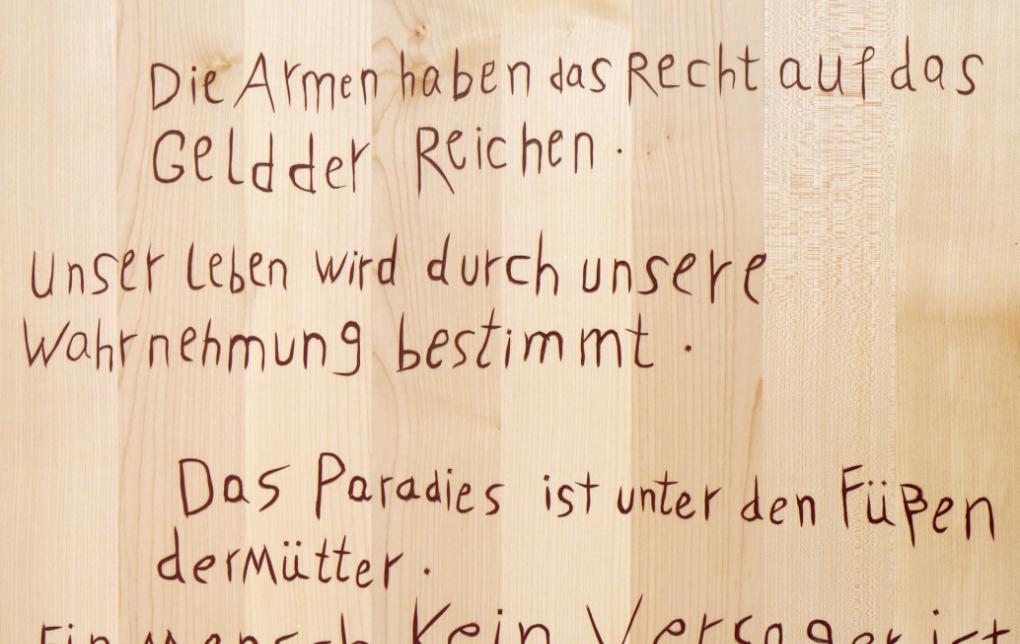 Die Armen haben das Recht auf das
Geld der Reichen.
Unser Leben wird durch unsere
Wahrnehmung bestimmt.
Das Paradies ist unter den Füßen
der Mütter.
Ein Mensch kein Versager ist